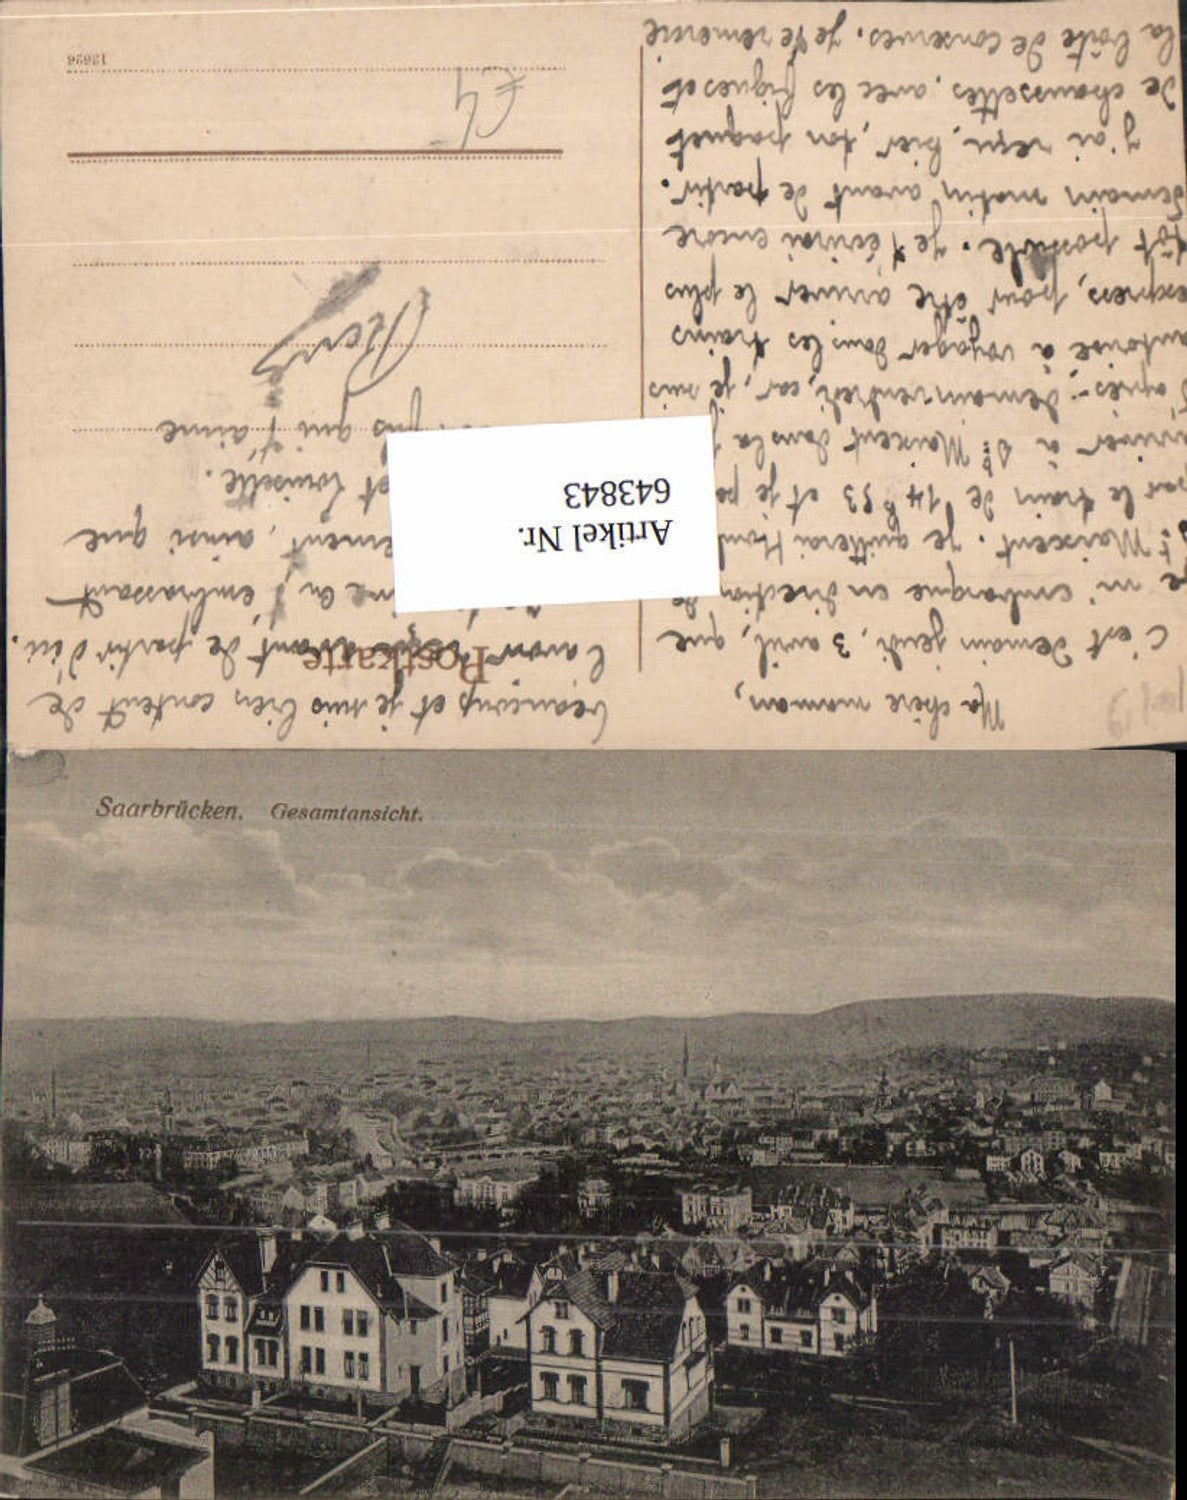 Ma chère maman,
C'est demain jeudi, 3 avril, que
je m'embarque en direction de
St Maixent. Je quitterai
par le train de 14h 53 et je
arriver à St Maixent dans la
d'après-demain vendredi, car, je suis
autorisé à voyager dans les trains
express, pour être arriver le plus
tôt possible. Je t'écrirai encore
demain matin avant de partir.
J'ai reçu, hier, ton paquet
de chaussettes, avec les figues et
la boîte de conserves. Je te remercie
beaucoup et je suis bien content de
l'avoir avant de partir d'ici.
en t'embrassant
ainsi que
et Louisette.
fils qui t'aime
René
Postkarte
12626
€4-
Artikel Nr.
643843
Saarbrücken. Gesamtansicht.